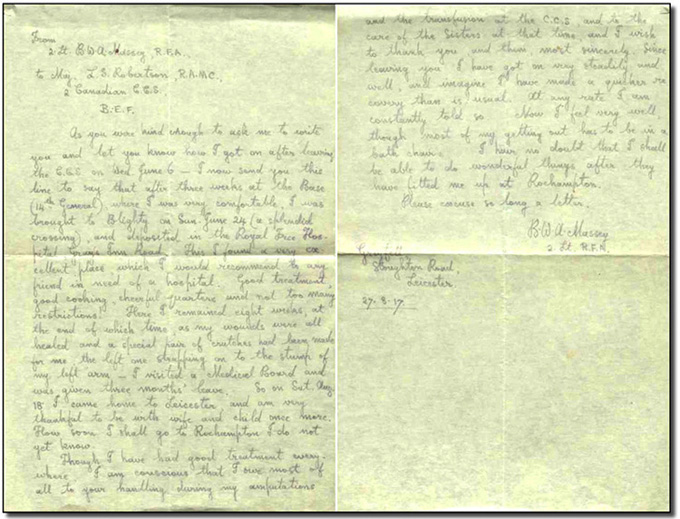 From
2 Lt. B.W.A. Massey R.F.A.,
to Maj. L.B. Robertson, R.A.M.C.,
2 Canadian C.C.S.
B.E.F.
As you were kind enough to ask me to write
you and let you know how I got on after leaving
the C.C.S. on Wed. June 6 – I now send you this
line to say that after three weeks at the Base
(14th General), where I was very comfortable, I was
brought to Blighty on Sun. June 24 (a splendid
crossing), and deposited in the Royal Free Hos-
pital, Grays Inn Road. This I found a very ex-
cellent place which I would recommend to any
friend in need of a hospital. Good treatment,
good cooking, cheerful quarters and not too many
restrictions! Here I remained eight weeks, at
the end of which time, as my wounds were all
healed and a special pair of crutches had been made
for me the left one strapping on to the stump of
my left arm – I visited a Medical Board and
was given three months' leave. So on Sat. Aug
18 I came home to Leicester, and am very
thankful to be with wife and child once more.
How soon I shall go to Roehampton I do not
yet know.
Though I have had good treatment every-
where, I am conscious that I owe most of
all to your handling during my amputations
and the transfusion at the C.C.S. and to the
care of the Sisters at that time, and I wish
to thank you and them most sincerely. Since
leaving you I have got on very steadily and
well, and imagine I have made a quicker re-
covery than is usual. At any rate I am
constantly told so. Now I feel very well
though most of my getting out has to be in a
bath chair. I have no doubt that I shall
be able to do wonderful things after they
have fitted me up at Roehampton.
Please excuse so long a letter.
B.W.A. Massey
2 Lt. R.F.A.
Stoughton Road,
Leicester.
27.8.17.